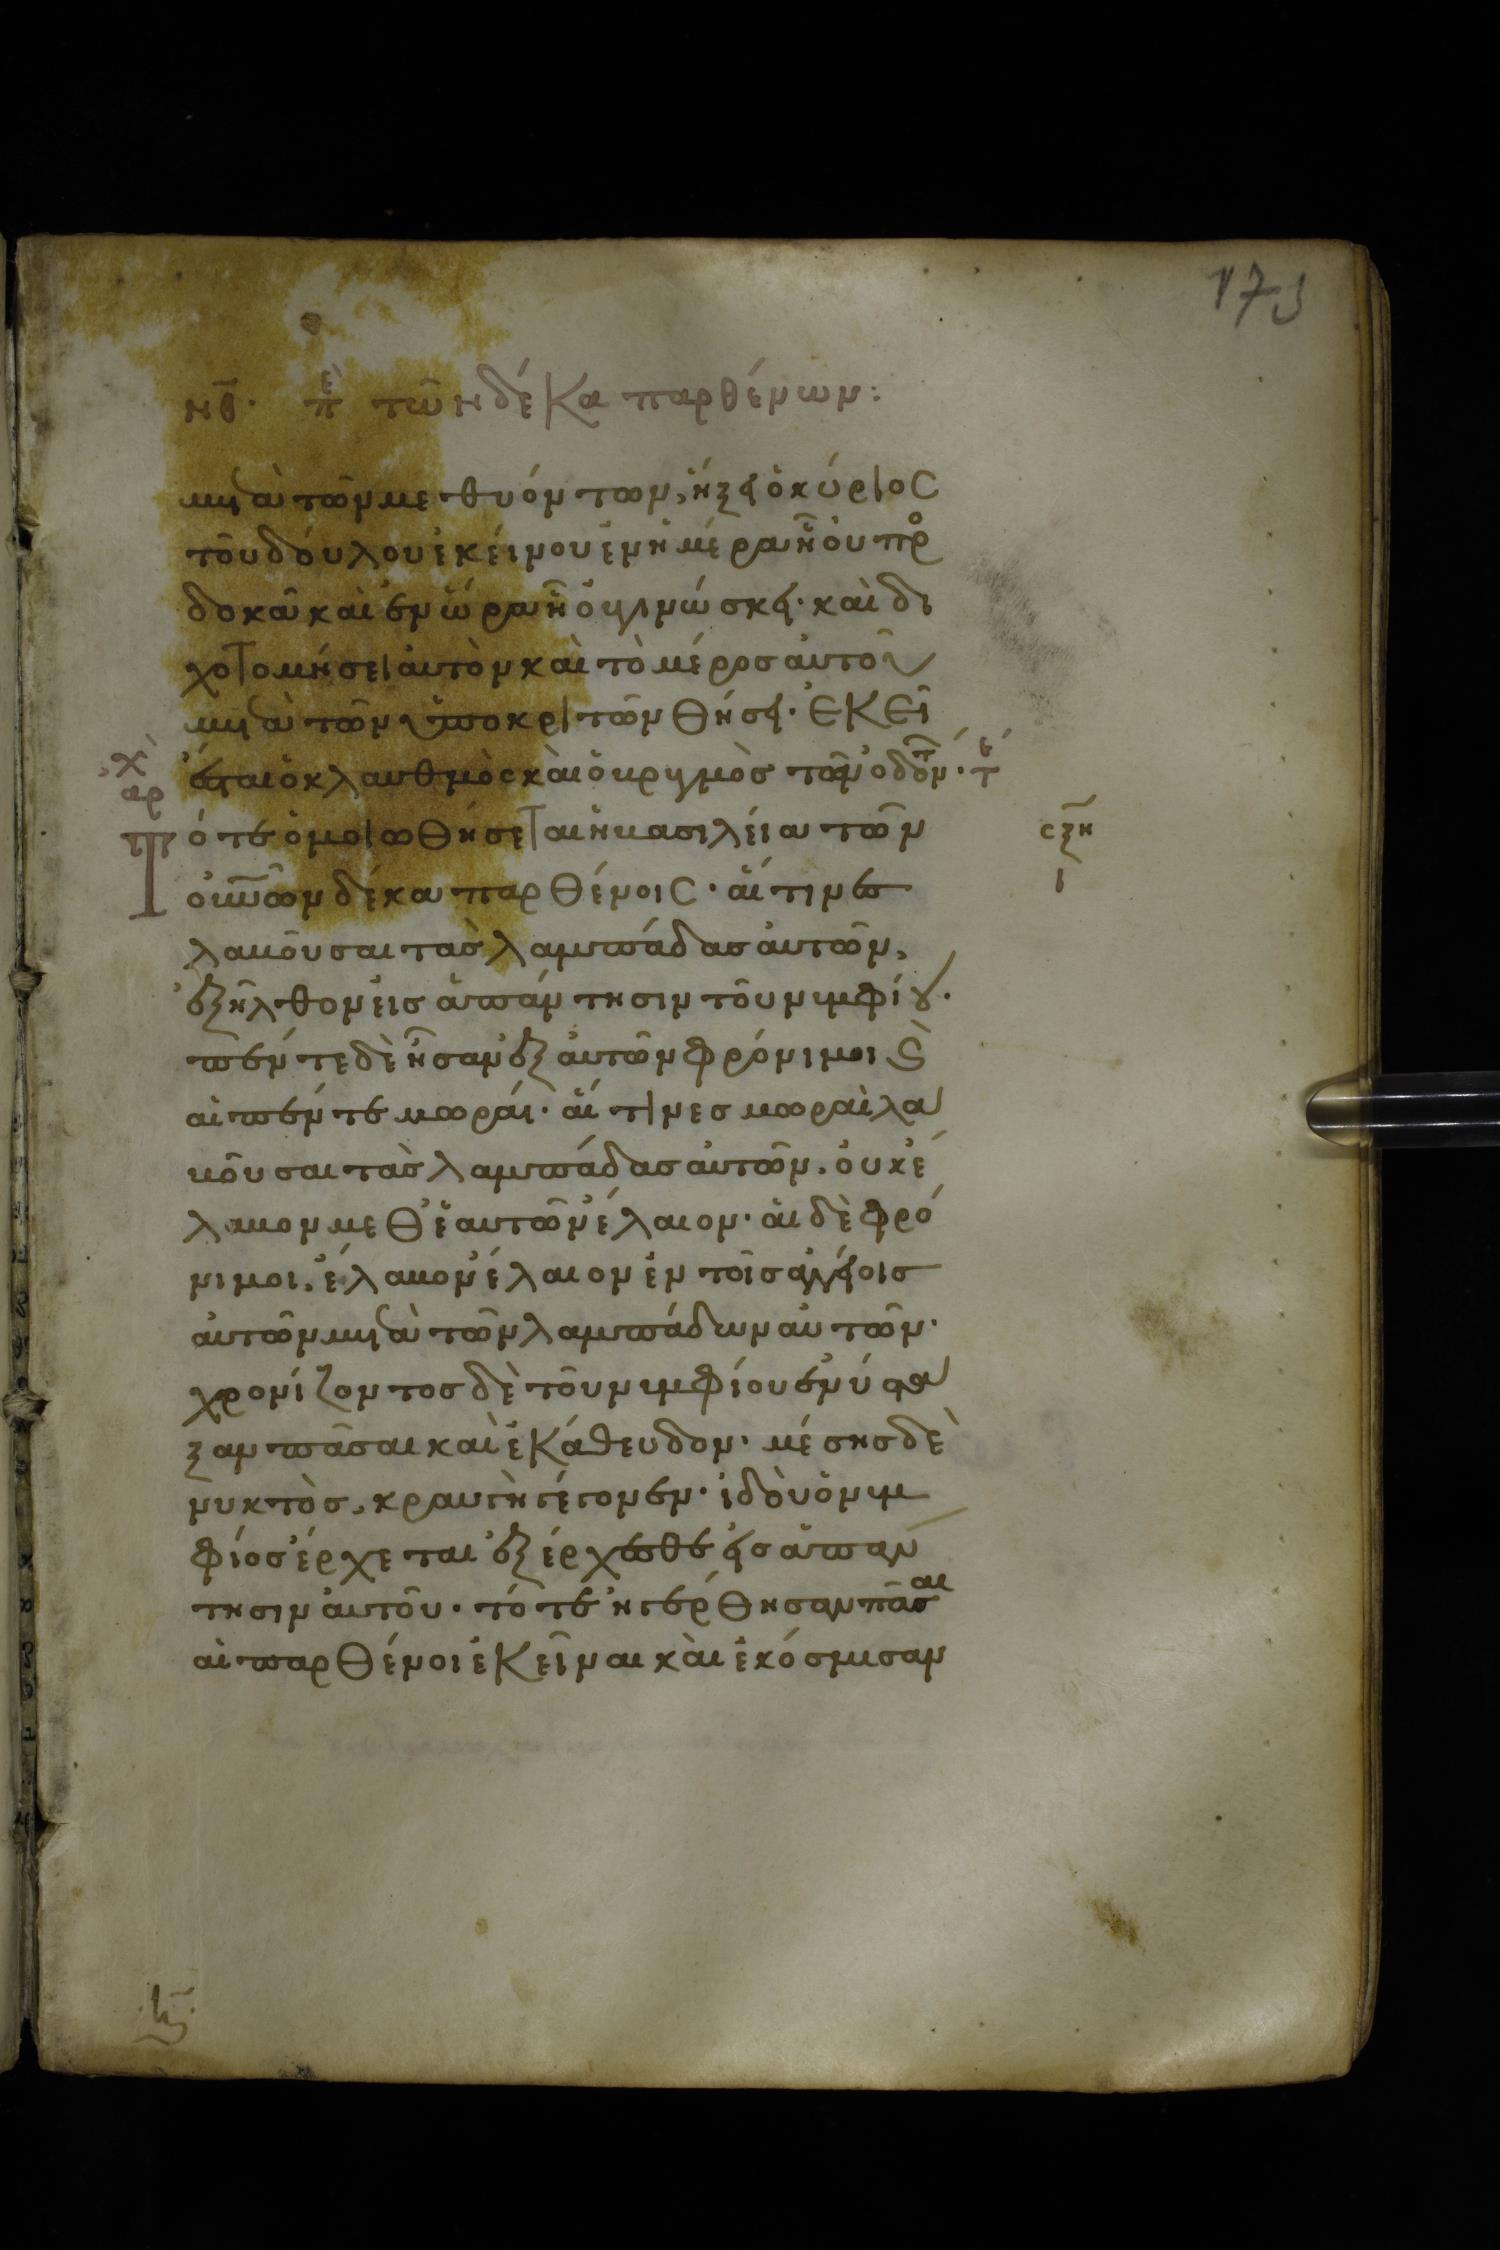 173
νβ. πε τῶν δέκα παρθένων:
μετὰ τῶν μεθυόντων, ἥξει ὁ κύριος
τοῦ δούλου ἐκείνου ἐν ἡμέρα ἧ οὐ προ
δοκᾶ καὶ ἐν ὥρα ἧ οὐ γινώσκει· καὶ δι
χοτομήσει αὐτὸν καὶ τὸ μέρος αὐτοῦ
μετὰ τῶν ὑποκριτῶν θήσει· ἐκεῖ
ἔσται ὁ κλαυθμὸς καὶ ὁ βρυγμὸς τῶν ὀδόντ·
χ
αρ
Τότε ὁμοιωθήσεται ἡ βασιλεία τῶν
σξη
ι
οὐνῶν δέκα παρθένοις· αἵτινες
λαβοῦσαι τὰς λαμπάδας αὐτῶν,
ἐξῆλθον εἰς ἀπάντησιν τοῦ νυμφίου·
πέντε δὲ ἦσαν ἐξ αὐτῶν φρόνιμοι ϗ
αἱ πέντε μωραί· αἵτινες μωραὶ λα
βοῦσαι τὰς λαμπάδας αὐτῶν, οὐκ ἔ
λαβον μεθ' ἑαυτῶν ἔλαιον· αἱ δὲ φρό
νιμοι, ἔλαβον ἔλαιον ἐν τοῖς ἀγγείοις
αὐτῶν μετὰ τῶν λαμπάδων αὐτῶν·
χρονίζοντος δὲ τοῦ νυμφίου ἐνύστα
ξαν πᾶσαι καὶ ἐκάθευδον· μέσης δὲ
νυκτὸς, κραυγὴ γέγονεν· ἰδοὺ ὁ νυμ
φίος ἔρχεται ἐξέρχεσθε εἰς ἀπάν
τησιν αὐτοῦ· τότε ἠγέρθησαν πᾶσαι
αἱ παρθένοι ἐκεῖναι καὶ ἐκόσμισαν